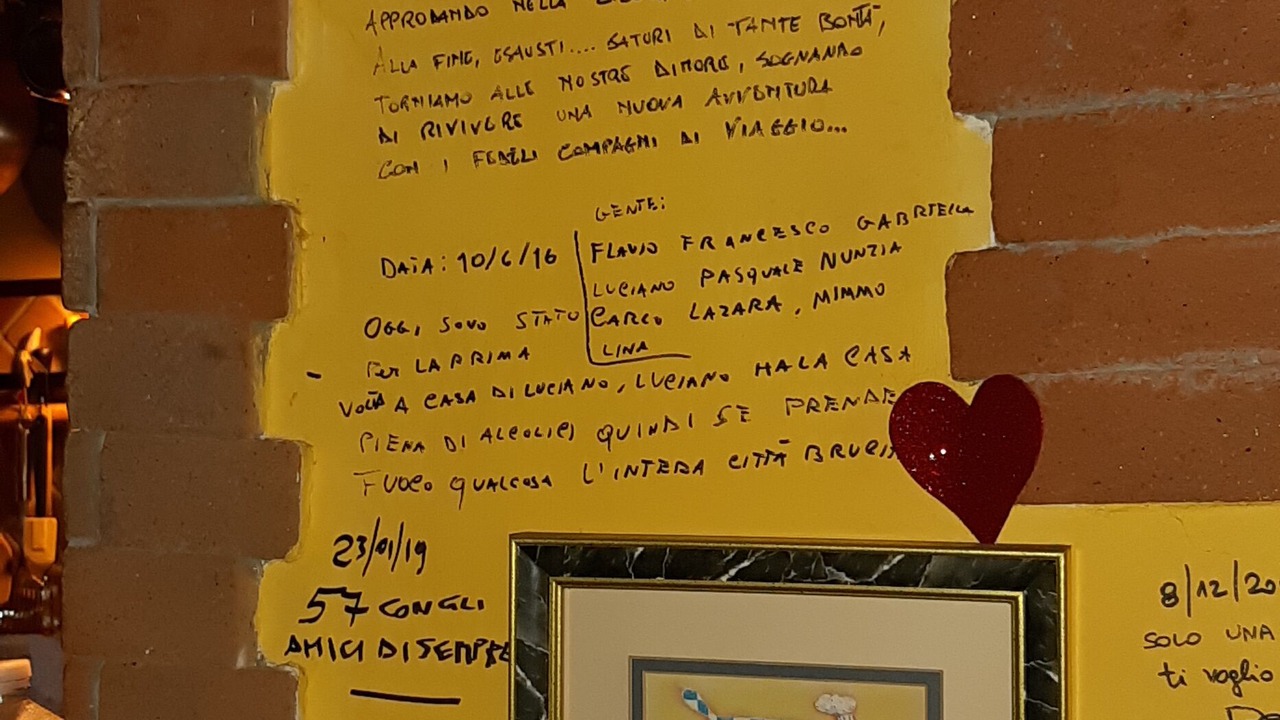 APPRODANDO NELLA
ALLA FINE, ESAUSTI.... SATURI DI TANTE BONTA',
TORNIAMO ALLE NOSTRE DIMORE, SOGNANDO
DI RIVIVERE UNA NUOVA AVVENTURA
CON I FEDELI COMPAGNI DI VIAGGIO...
GENTE:
DATA: 10/6/16
FLAVIO FRANCESCO GABRIELLA
LUCIANO PASQUALE NUNZIA
CARLO LAZARA, MIMMO
LINA
OGGI, SONO STATO
Per LA PRIMA
VOLTA A CASA DI LUCIANO, LUCIANO HA LA CASA
PIENA DI ALCOLICI QUINDI SE PRENDE
FUOCO QUALCOSA L'INTERA CITTÀ BRUCIA
23/01/19
57 CON GLI
AMICI DI SEMPRE
8/12/20
SOLO UNA
ti voglio